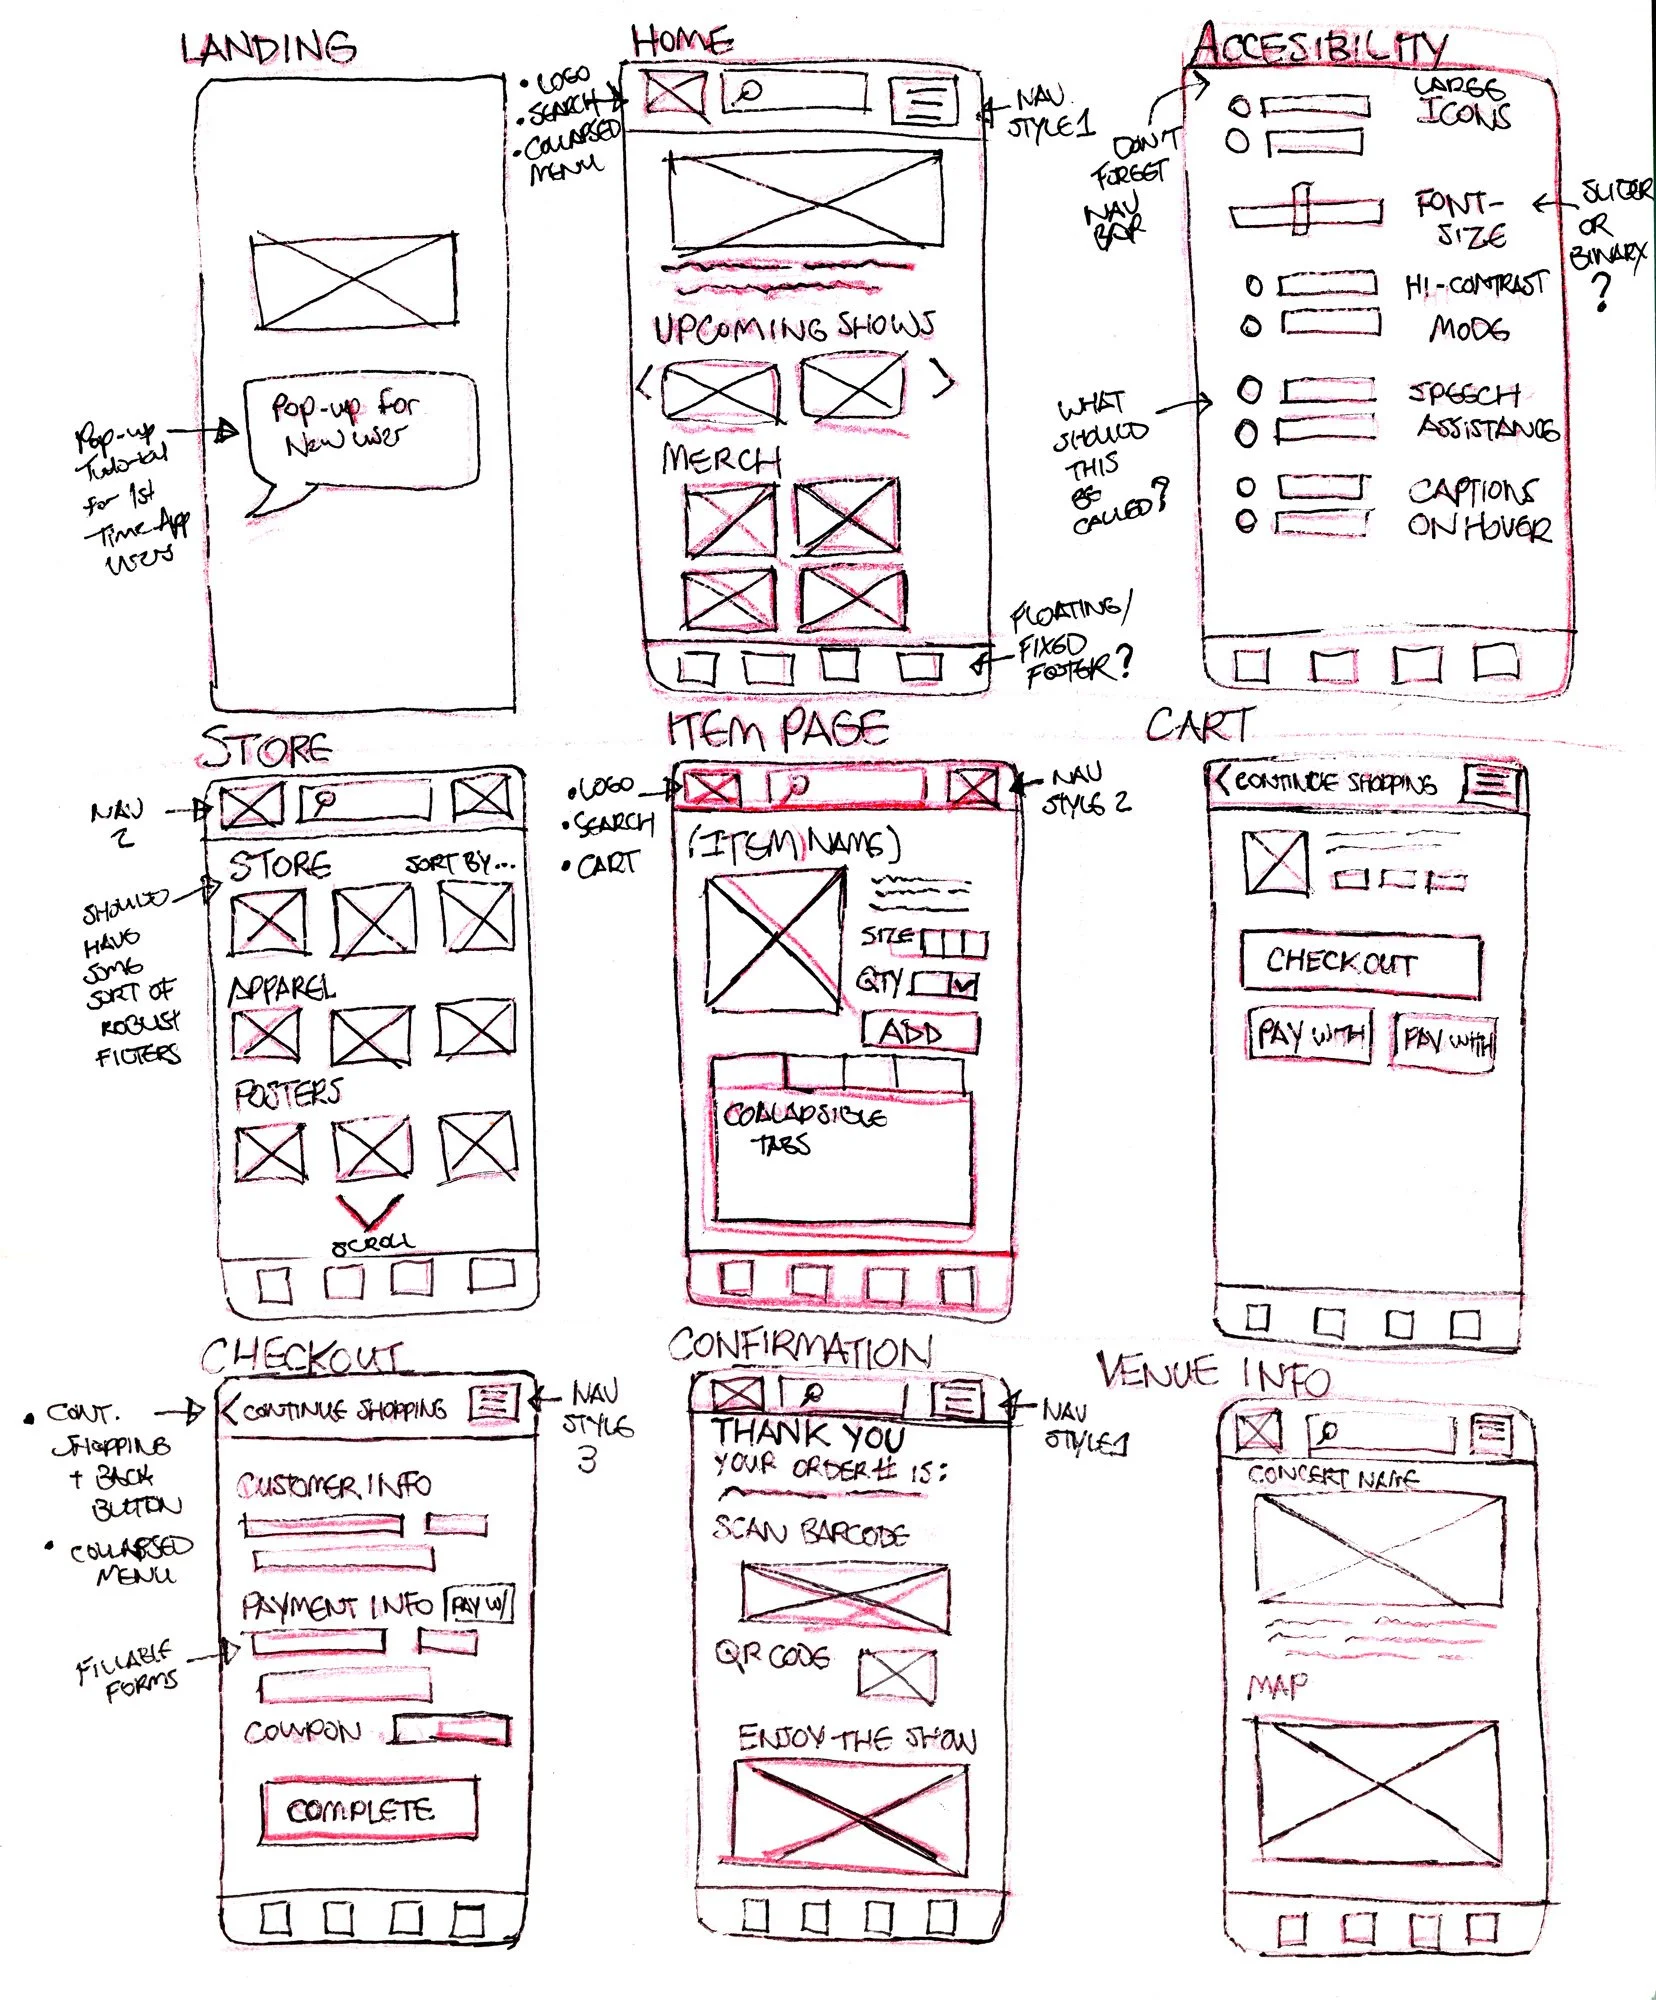 LANDING
Pop-up for
New user
Pop-up
Tutorial
for 1st
Time App
users
HOME
• LOGO
• SEARCH
• COLLAPSED
MENU
NAV
STYLE 1
UPCOMING SHOWS
MERCH
FLOATING/
FIXED
FOOTER?
ACCESIBILITY
DON'T
FORGET
NAV
BAR
LARGE
ICONS
FONT-
SIZE
SLIDER
OR
BINARY
?
HI-CONTRAST
MODE
WHAT
SHOULD
THIS
BE
CALLED?
SPEECH
ASSISTANCE
CAPTIONS
ON HOVER
STORE
NAV
2
STORE
SORT BY...
SHOULD
HAVE
SOME
SORT OF
ROBUST
FILTERS
APPAREL
POSTERS
SCROLL
ITEM PAGE
• LOGO
• SEARCH
• CART
NAV
STYLE 2
(ITEM NAME)
SIZE
QTY
ADD
COALAPSIBLE
TABS
CART
< CONTINUE SHOPPING
CHECKOUT
PAY WITH
PAY WITH
CHECKOUT
• CONT.
SHOPPING
+ BACK
BUTTON
• COLLAPSED
MENU
< CONTINUE SHOPPING
NAV
STYLE
3
CUSTOMER INFO
PAYMENT INFO
PAY W/
FILLABLE
FORMS
COUPON
COMPLETE
CONFIRMATION
NAV
STYLE 1
THANK YOU
YOUR ORDER # IS:
SCAN BARCODE
QR CODE
ENJOY THE SHOW
VENUE INFO
CONCERT NAME
MAP